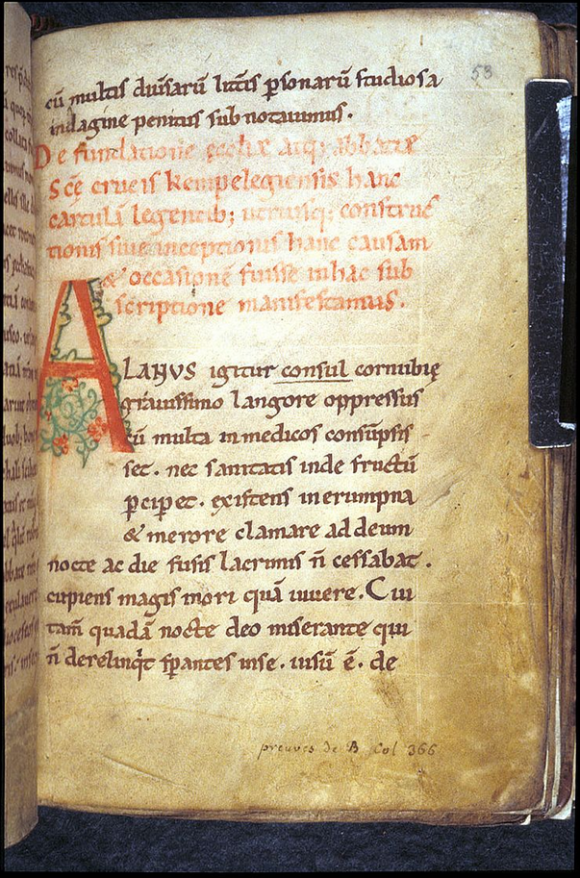 53
cū multis diūsarū littīs ꝑsonarū studiosa
indagine penitus subnotauimus.
De fundatione ęcclīæ atq; abbatiæ
Scę crucis kempelegiensis hanc
cartulā legentib; utriusq; construc
tionis siue inceptionis hanc causam
& occasionē fuisse in hac sub
scriptione manifestamus.
ALANUS igitur consul cornubię
grauissimo langore oppressus
cū multa in medicos consūpsis
set. nec sanitatis inde fructū
ꝑciꝑet. existens in erumpna
& merore clamare ad deum
nocte ac die fusis lacrimis n̄ cessabat.
cupiens magis mori quā uiuere. Cui
tam̄ quadā nocte deo miserante qui
n̄ derelinq̇t sꝑantes in se. uisū ē. de
preuves de B Col 366